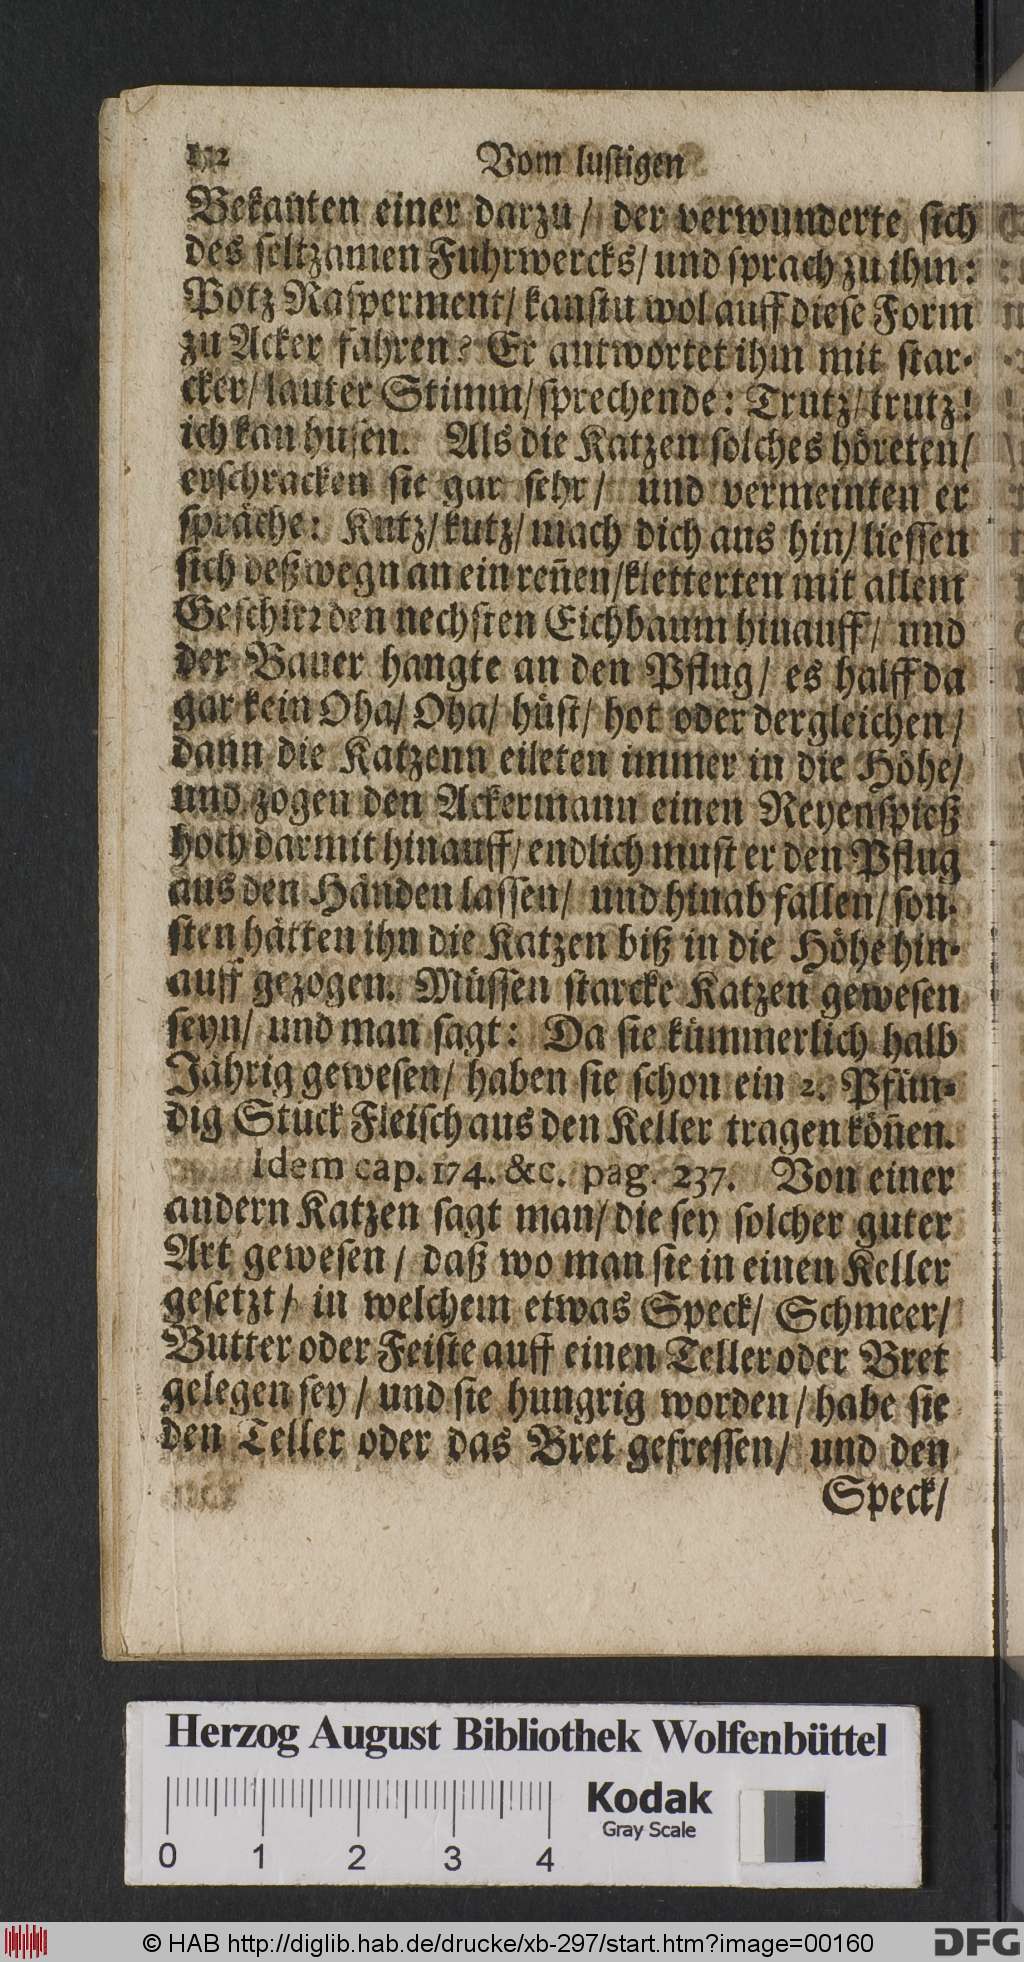 132
Vom lustigen
Bekanten einer darzu / der verwunderte sich
des seltzamen Fuhrwercks / und sprach zu ihm:
Potz Rasperment / kanstu wol auff diese Form
zu Acker fahren? Er antwortet ihm mit star-
cker / lauter Stimm / sprechende: Trutz / trutz!
ich kan husen. Als die Katzen solches höreten /
erschracken sie gar sehr / und vermeinten er
spräche: Kutz / kutz / mach dich aus hin / liessen
sich deßwegn an ein reñen / kletterten mit allem
Geschirr den nechsten Eichbaum hinauff / und
der Bauer hangte an den Pflug / es halff da
gar kein Oha / Oha / hüst / hot oder dergleichen /
dann die Katzenn eileten immer in die Höhe /
und zogen den Ackermann einen Reyenspieß
hoch darmit hinauff / endlich must er den Pflug
aus den Händen lassen / und hinab fallen / son-
sten hätten ihn die Katzen biß in die Höhe hin-
auff gezogen. Müssen starcke Katzen gewesen
seyn / und man sagt: Da sie kümmerlich halb
Jährig gewesen / haben sie schon ein 2. Pfün-
dig Stuck Fleisch aus den Keller tragen köñen.
Idem cap. 174. &c. pag. 237. Von einer
andern Katzen sagt man / die sey solcher guter
Art gewesen / daß wo man sie in einen Keller
gesetzt / in welchem etwas Speck / Schmeer /
Butter oder Feiste auff einen Teller oder Bret
gelegen sey / und sie hungrig worden / habe sie
den Teller oder das Bret gefressen / und den
Speck /
Herzog August Bibliothek Wolfenbüttel
Kodak
Gray Scale
0 1 2 3 4
© HAB http://diglib.hab.de/drucke/xb-297/start.htm?image=00160
DFG